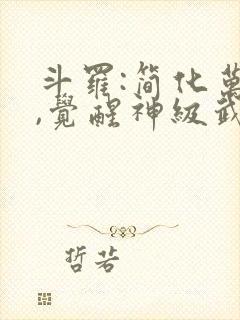 斗羅:簡化萬
,覺醒神級武
哲若